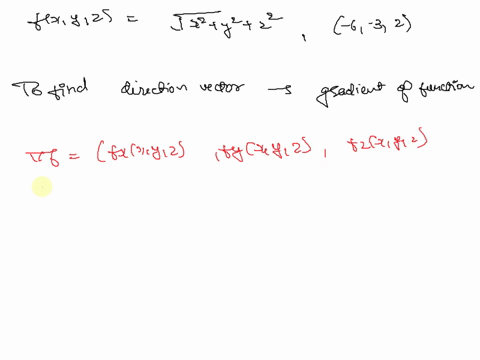 f(x,y,z) = √x²+y²+z² , (-6,-3,2)
To find direction vector → gradient of function
∇f = (fx(x,y,z) , fy(x,y,z) , fz(x,y,z)